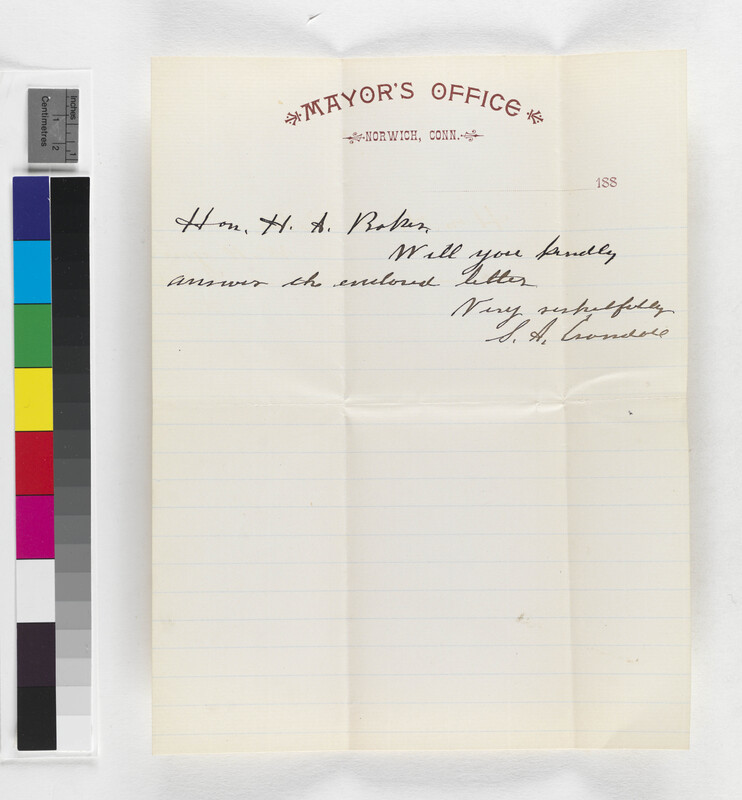 inches
Centimetres
1
2
1
MAYOR'S OFFICE
NORWICH, CONN.
188
Hon. H. A. Baker,
Will you kindly
answer the enclosed letter
Very respectfully
S. A. Crandall